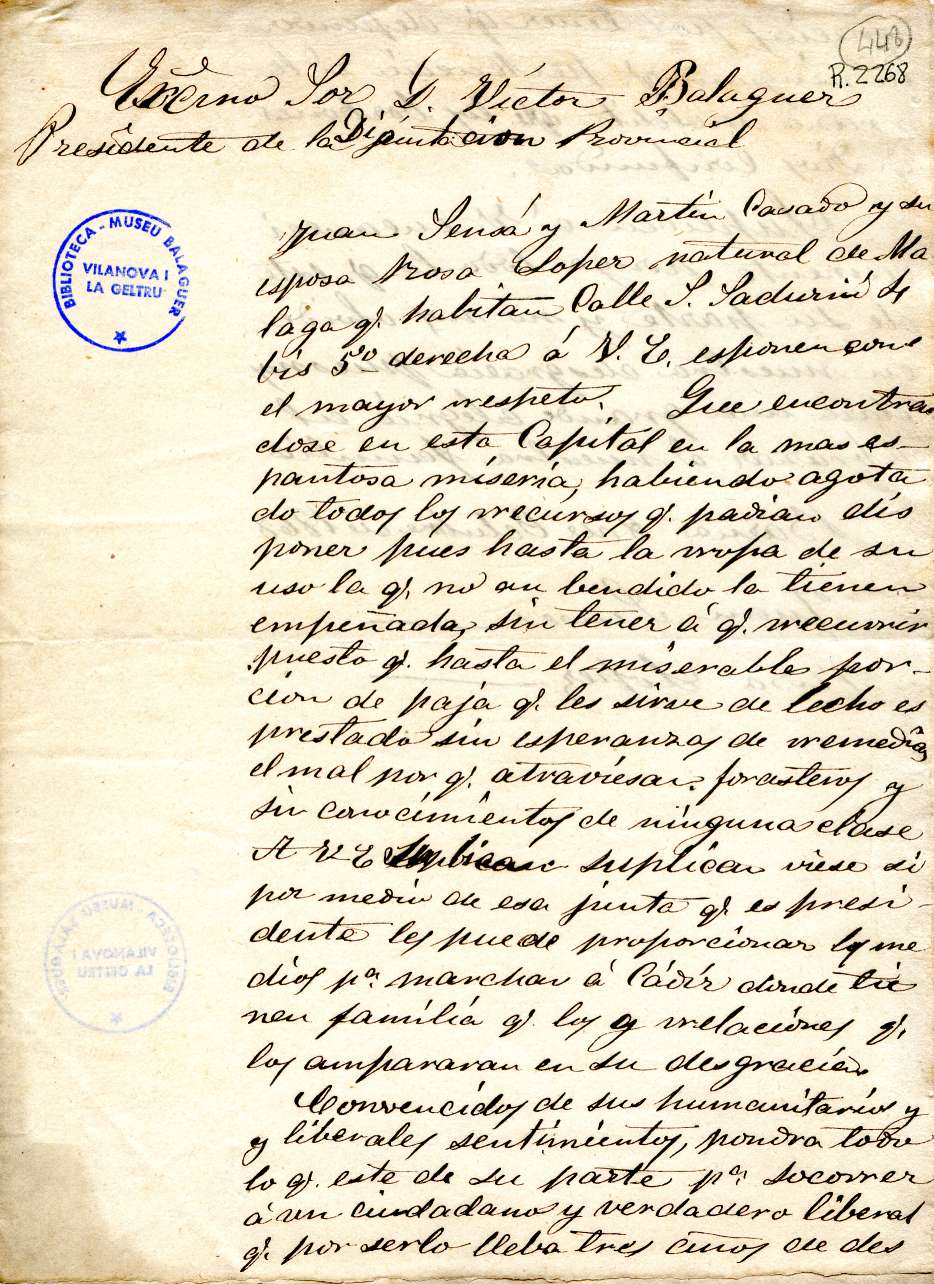 448
R. 2268
Excmo Sor D. Víctor Balaguer
Presidente de la Diputacion Provincial
BIBLIOTECA - MUSEU BALAGUER
VILANOVA I
LA GELTRU
Juan Sensá y Martin Casado y su
esposa Rosa Loper natural de Ma
laga q. habitan Calle S. Sadurní 4
bis 5º derecha á V. E. esponen con
el mayor respeto. Que encontran
dose en esta Capital en la mas es-
pantosa miseria, habiendo agota
do todos los recursos q. padian dis
poner pues hasta la rropa de su
uso la q. no an bendido la tienen
empeñada, sin tener á q. rrecurrir
puesto q. hasta el miserable por-
cion de paja q. les sirve de lecho es
prestado sin esperanzas de rremediar
el mal por q. atraviesan forasteros y
sin conocimientos de ninguna clase
A V E suplican viese si
por medio de esa junta q. es presi-
dente les puede proporcionar los me
dios pª marchar á Cádiz donde tie
nen família q. los y rrelaciones q.
los ampararan en su desgracia
Convencidos de sus humanitarios y
y liberales sentimientos, pondra todo
lo q. este de su parte pª socorrer
á un ciudadano y verdadero liberal
q. por serlo lleba tres años de des